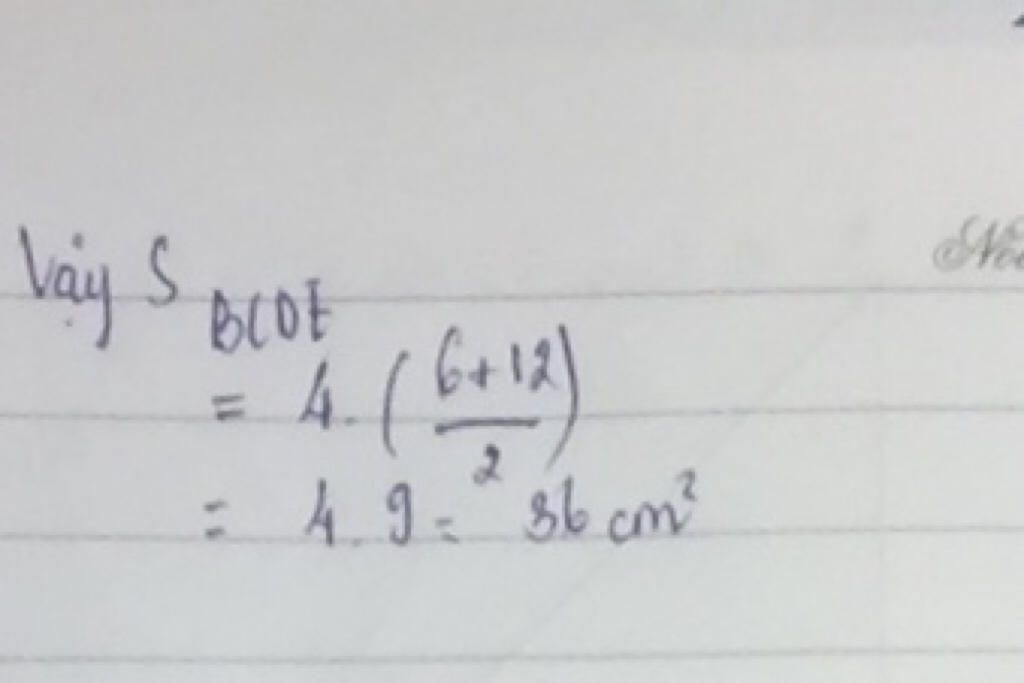 Vậy S BCDE
= 4. (6+12/2)
= 4. 9 = 36 cm²